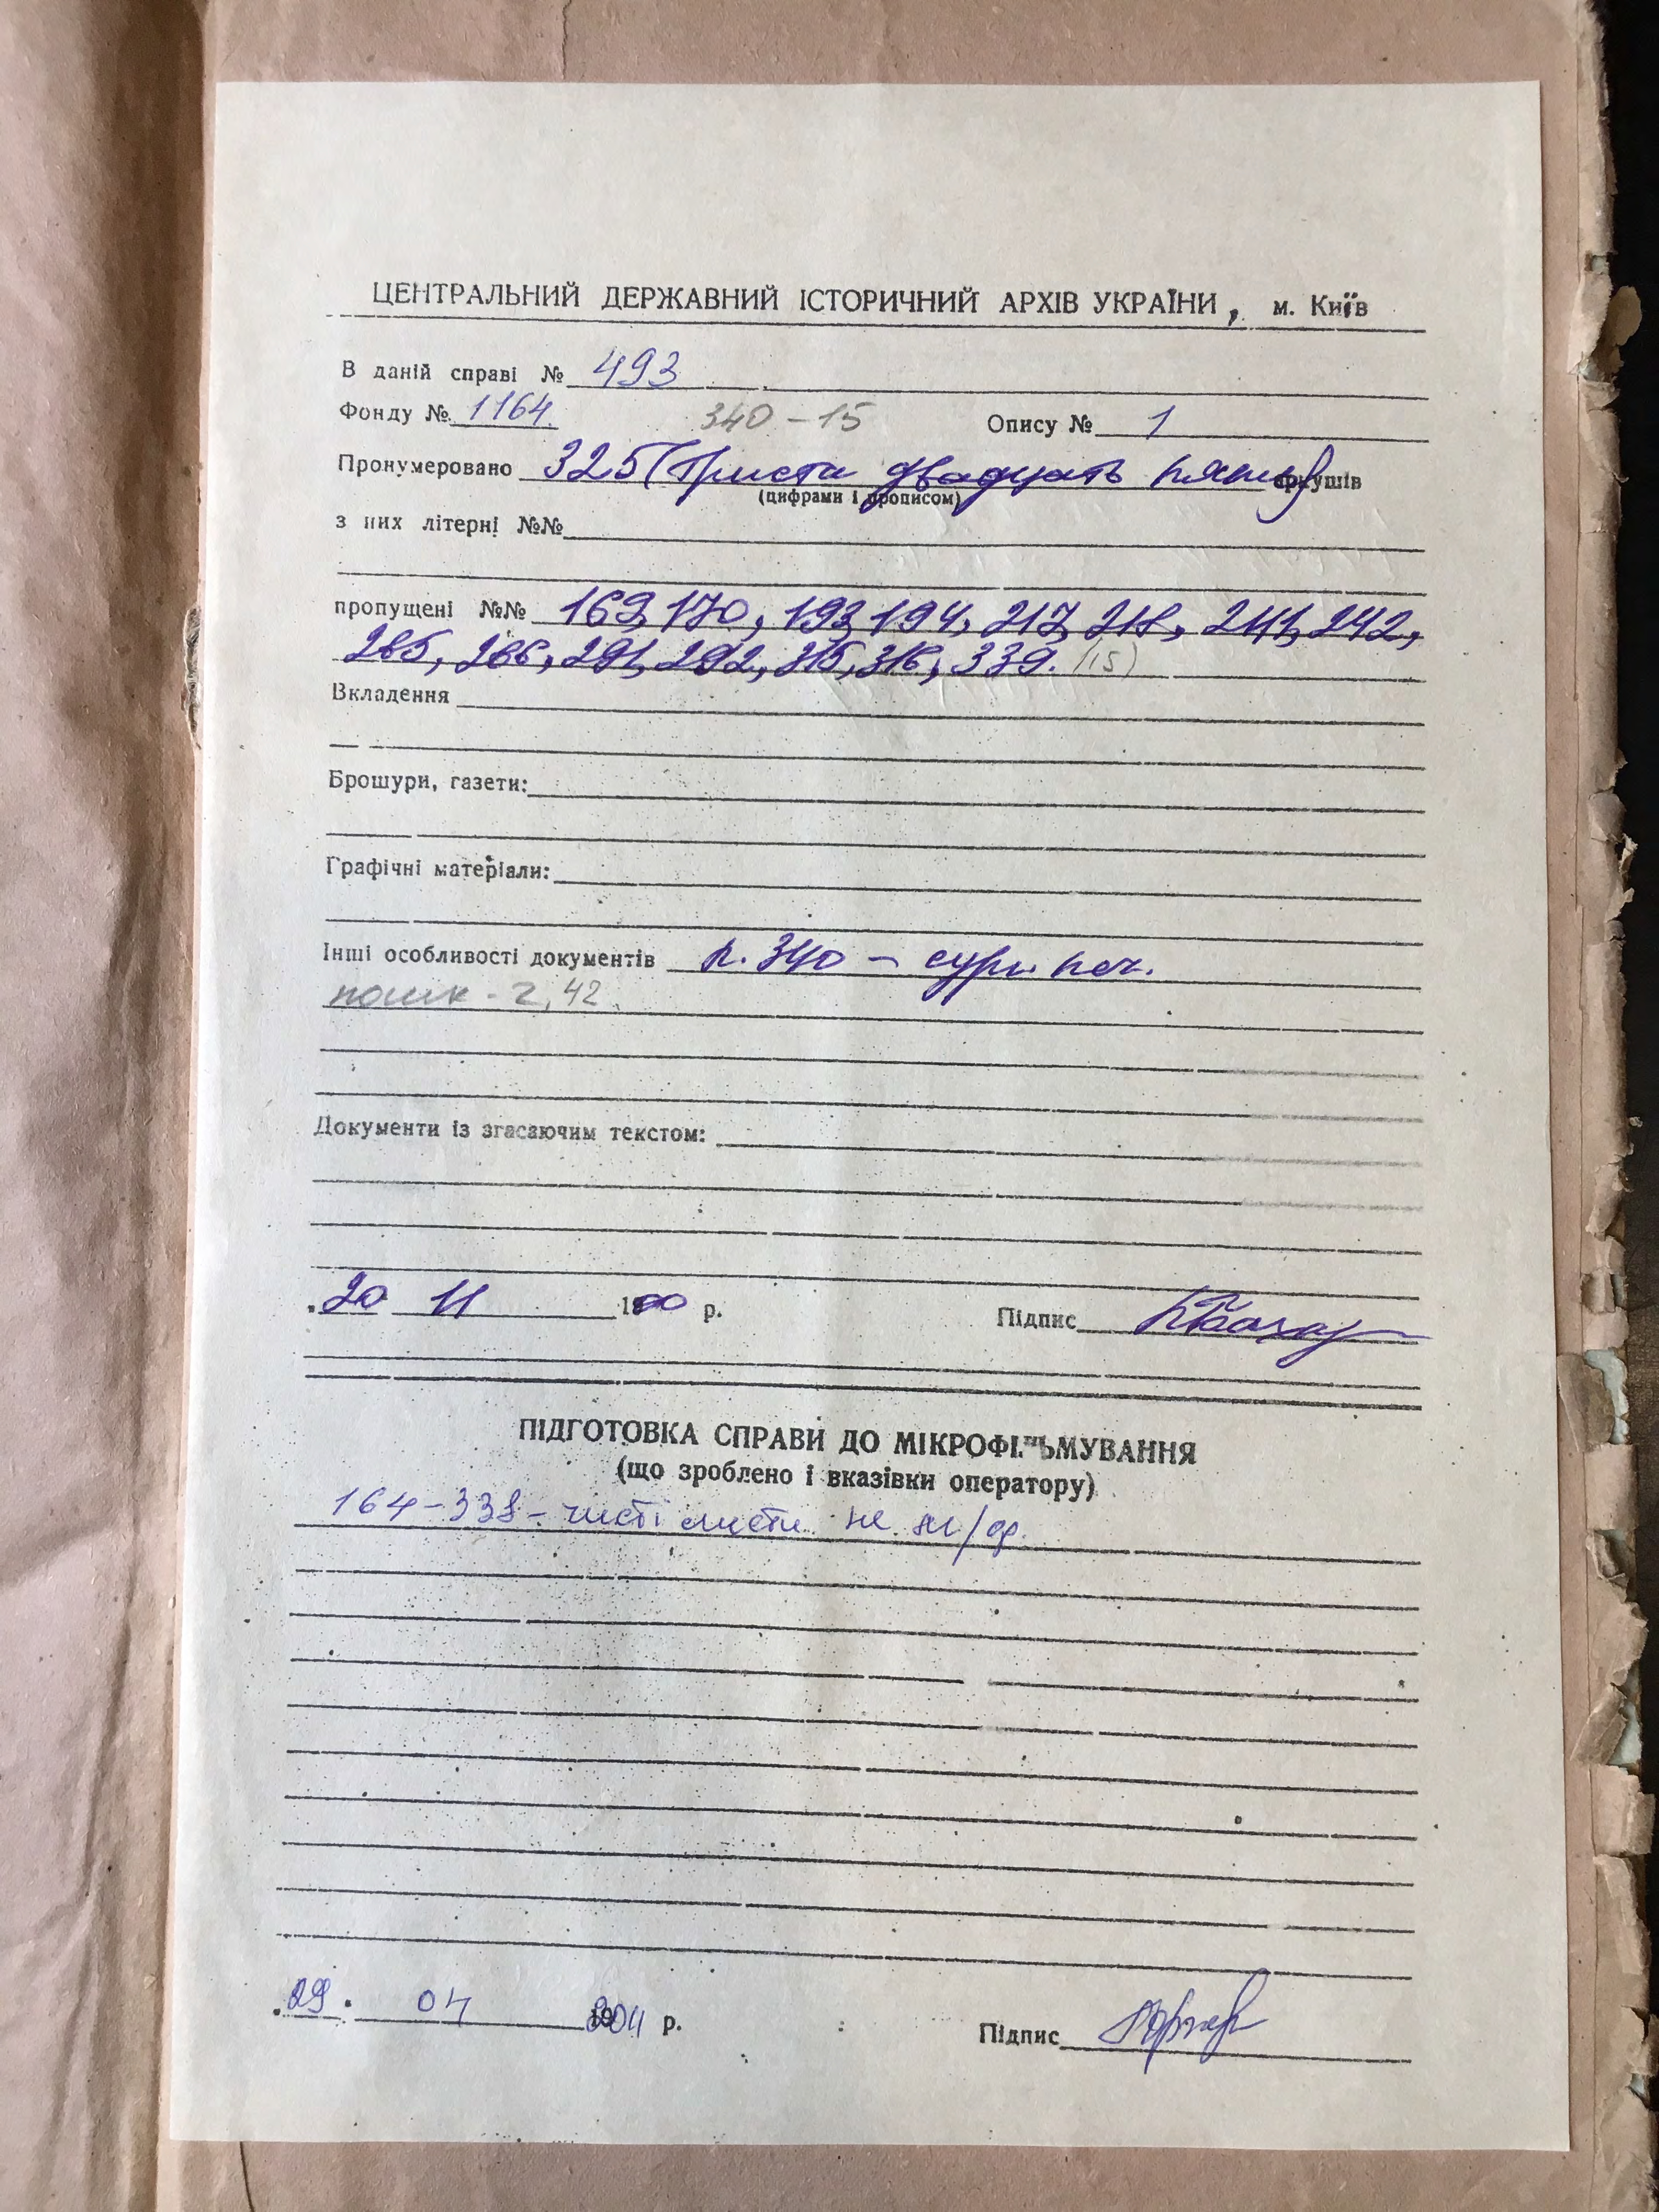 ЦЕНТРАЛЬНИЙ ДЕРЖАВНИЙ ІСТОРИЧНИЙ АРХІВ УКРАЇНИ, м. Київ
В даній справі № 493
Фонду № 1164 340 - 15 Опису № 1
Пронумеровано 325 (Триста двадцать пять) аркушів
(цифрами і прописом)
з них літерні №№
пропущені №№ 169, 170, 193, 194, 217, 218, 241, 242,
265, 266, 291, 292, 315, 316, 339. (15)
Вкладення
Брошури, газети:
Графічні матеріали:
Інші особливості документів л. 340 - сург. печ.
2, 42
Документи із згасаючим текстом:
20 11 р. Підпис
ПІДГОТОВКА СПРАВИ ДО МІКРОФІЛЬМУВАННЯ
(що зроблено і вказівки оператору)
164-338 - чисті листи не м/ф.
29. 04 р. Підпис